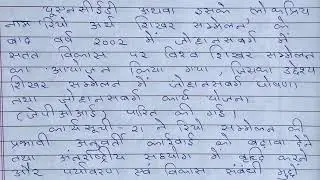 एनसीईडी अथवा इसके लोकप्रिय
नाम रियो अर्थ शिखर सम्मेलन के
बाद वर्ष २००२ में जोहान्सबर्ग में
सतत विकास पर विश्व शिखर सम्मेलन
का आयोजन किया गया, जिसका उद्देश्य
शिखर सम्मेलन में जोहान्सबर्ग घोषणा
तथा जोहान्सबर्ग कार्य योजना
(जेपीओआई) पारित की गई।
कार्यसूची-२१ ने रियो सम्मेलन की
प्रभावी अनुवर्ती कार्रवाई को बढ़ावा देने
तथा अंतर्राष्ट्रीय सहयोग में वृहद करने
और पर्यावरण एवं विकास संबंधी मुद्दों